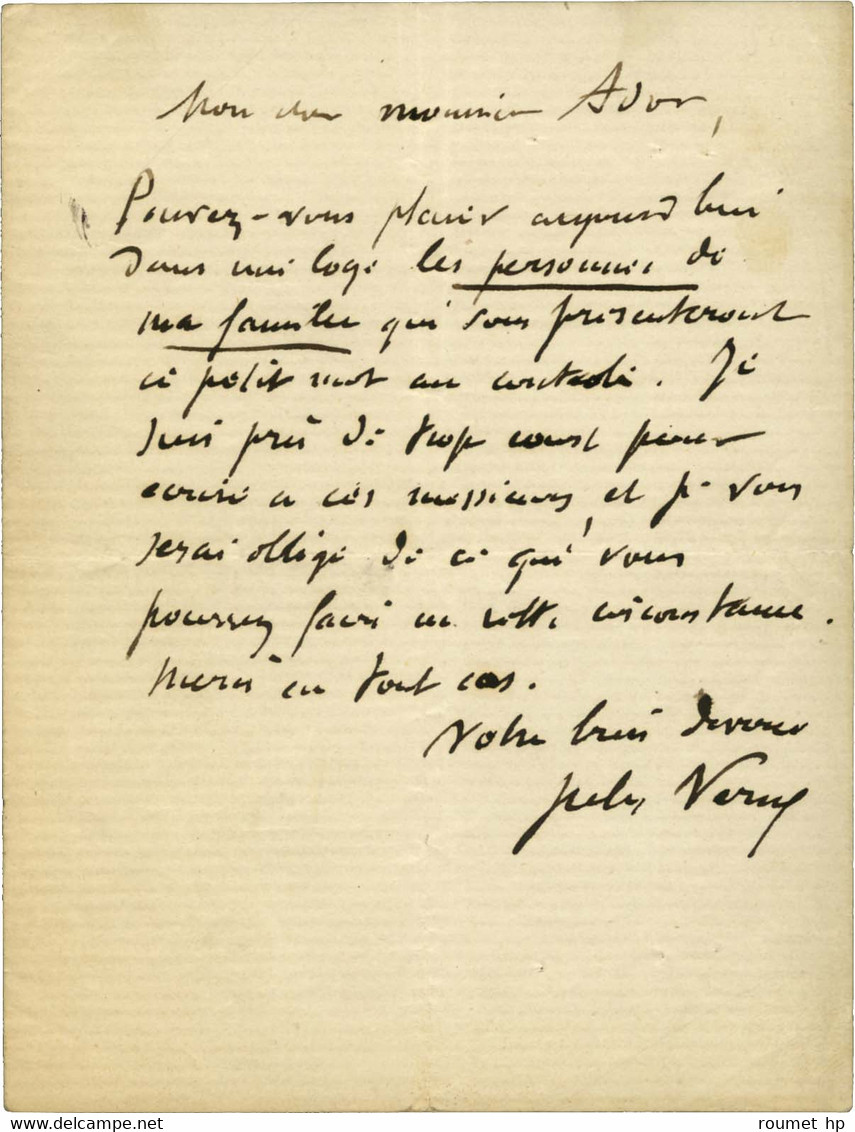 Mon cher monsieur Ador,
Pouvez-vous placer aujourd'hui
dans une loge les personnes de
ma famille qui vous présenteront
ce petit mot au contrôle. Je
suis pris de trop court pour
écrire à ces messieurs, et je vous
serai obligé de ce que vous
pourrez faire en cette circonstance.
Merci en tout cas.
Votre bien dévoué
Jules Verne
www.delcampe.net
roumet hp